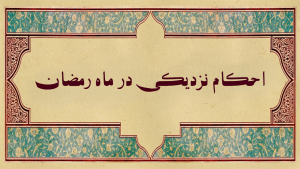 احکام نزدیکی در ماه رمضان